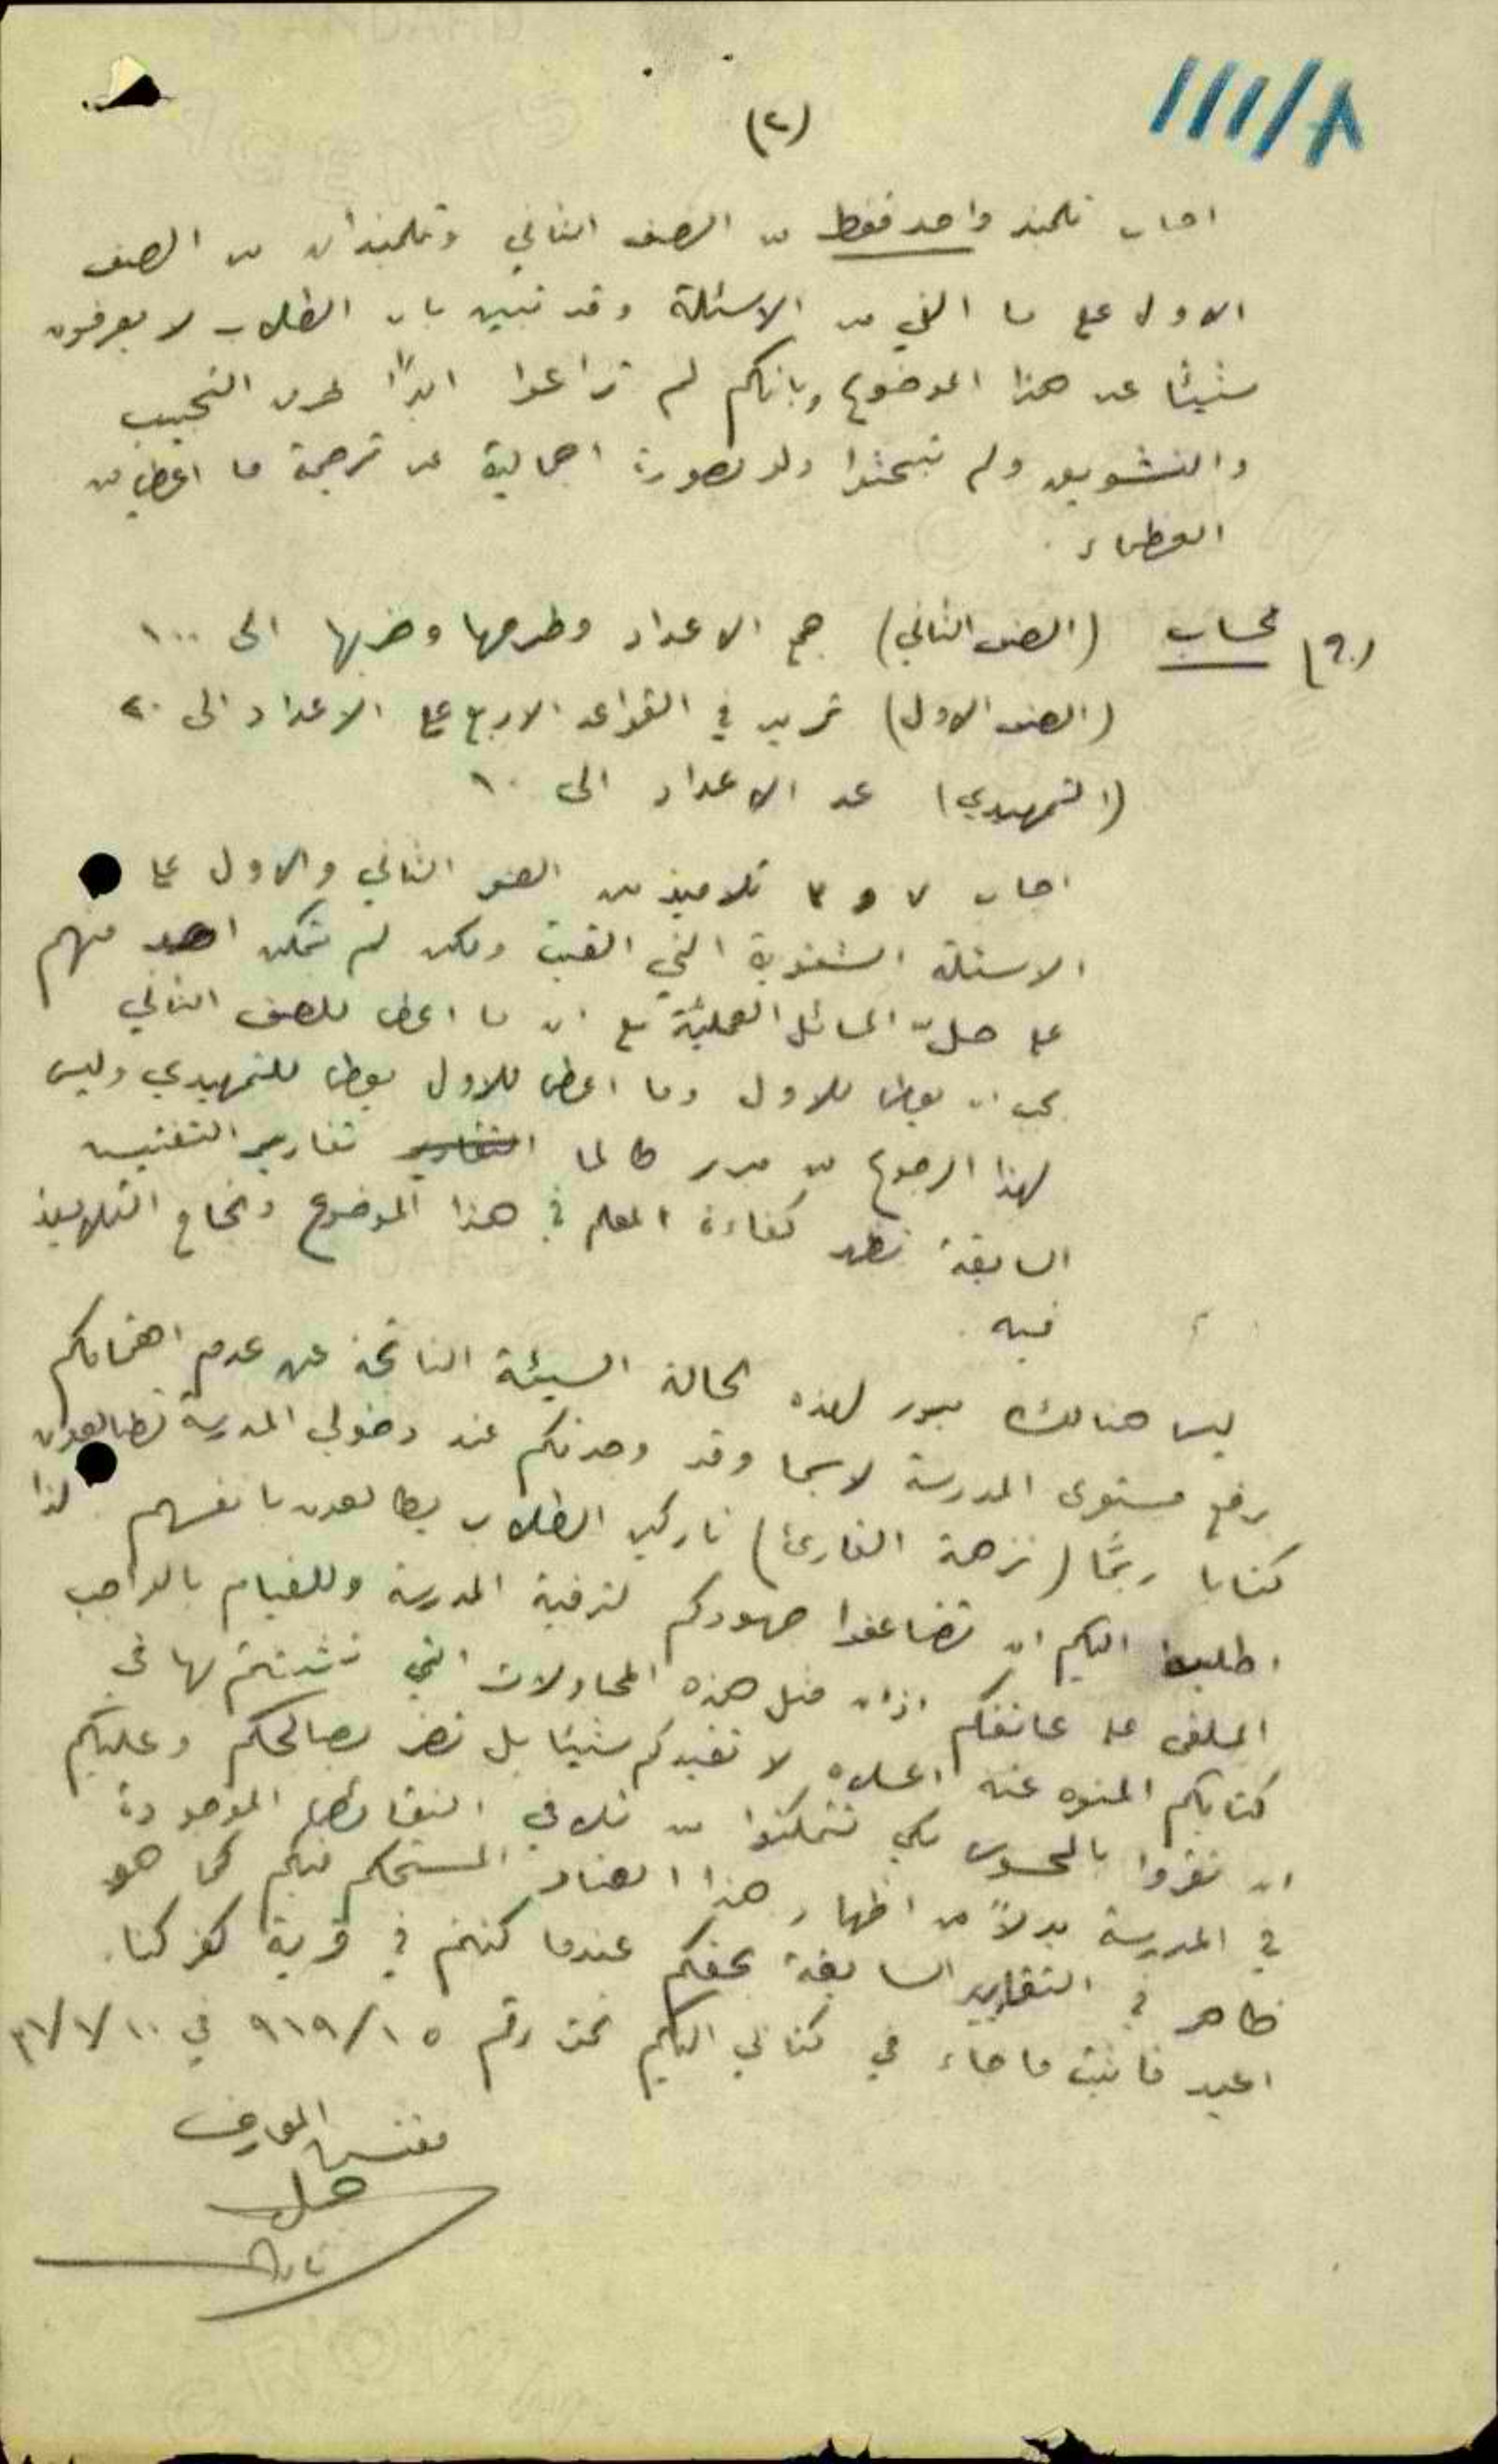 ١١١/٨
(٢)
اجاب تلميذ واحد فقط من الصف الثاني وتلميذان من الصف
الاول على ما القي من الاسئلة وقد تبين بان الطلاب لا يعرفون
شيئا عن هذا الموضوع وبانكم لم تراعوا ابدًا طرق التحبيب
والتشويق ولم تبحثوا ولو بصورة اجمالية عن ترجمة ما اعطي من
العظماء.
حساب (الصف الثاني) جمع الاعداد وطرحها وضربها الى ١٠٠
(الصف الاول) تمرين في القواعد الاربع على الاعداد الى ٢٠
(التمهيدي) عد الاعداد الى ١٠
اجاب ٧ و ٣ تلاميذ من الصف الثاني والاول على
الاسئلة الشفوية التي القيت ولكن لم يتمكن احد منهم
على حلّ المسائل العملية مع ان ما اعطي للصف الثاني
يجب ان يعطى للاول وما اعطي للاول يعطى للتمهيدي وليس
لهذا الرجوع من مبرر طالما التقارير تقارير التفتيش
السابقة تظهر كفاءة المعلم في هذا الموضوع ونجاح التلاميذ
فيه.
ليس هنالك مبرر لهذه الحالة السيئة الناتجة عن عدم اهتمامكم
برفع مستوى المدرسة لاسيما وقد وجدتكم عند دخولي المدرسة تطالعون
كتابا ربّما (نزهة القارئ) تاركين الطلاب يطالعون بانفسهم لذا
اطلب اليكم ان تضاعفوا جهودكم لترقية المدرسة وللقيام بالواجب
الملقى على عاتقكم اذ ان مثل هذه المحاولات التي تشبثتم بها في
كتابكم المنوه عنه اعلاه لا تفيدكم شيئا بل تضر بصالحكم وعليكم
ان تقروا بالمحسوس لكي تتمكنوا من تلافي النقائص الموجودة
في المدرسة بدلاً من اظهار هذا العناد المستحكم فيكم كما هو
ظاهر في التقارير السابقة بحقكم عندما كنتم في قرية كفركنا.
اعيد فاثبت ما جاء في كتابي اليكم تحت رقم ٩١٩/١٥ في
مفتش المعارف